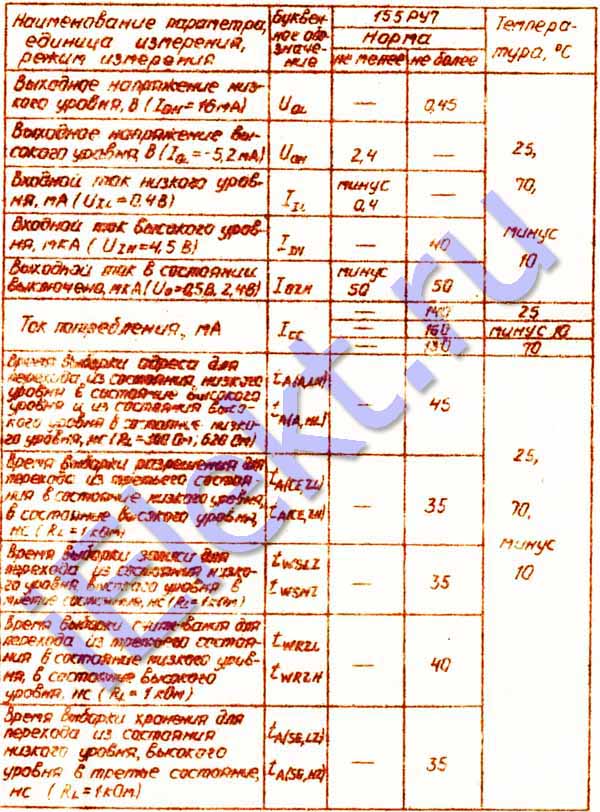 Наименование параметра, единица измерения, режим измерения
Буквенное обозначение
155РУ7
Норма
не менее не более
Температура, °С
Выходное напряжение низ-
кого уровня, В (IOH = 16мА) UOL — 0,45
Выходное напряжение вы-
сокого уровня, В (IOL = -5,2мА) UOH 2,4 —
Входной ток низкого уров-
ня, мА (UIL = 0,4В) IIL минус 0,4 —
Входной ток высокого уров-
ня, мкА (UIH = 4,5 В) IIH — 40
Выходной ток в состоянии
выключено, мкА (UO = 0,5В, 2,4В) IOZH минус 50 50
25,
70,
минус
10
Ток потребления, мА ICC
— 140 25
— 160 минус 10
— 130 70
Время выборки адреса для
перехода из состояния низкого
уровня в состояние высокого
уровня и из состояния высо-
кого уровня в состояние низко-
го уровня, нс (RL = 300 Ом, 620 Ом)
tA(A,LH)
tA(A,HL)
— 45
Время выборки разрешения для
перехода из третьего состоя-
ния в состояние низкого уровня,
в состояние высокого уровня,
нс (RL = 1кОм)
tA(CE,ZL)
tA(CE,ZH)
— 35
25,
70,
минус
10
Время выборки записи для
перехода из состояния низко-
го уровня, высокого уровня в
третье состояние, нс (RL = 1кОм)
tWSLZ
tWSHZ
— 35
Время выборки считывания для
перехода из третьего состоя-
ния в состояние низкого уров-
ня, в состояние высокого
уровня, нс (RL = 1кОм)
tWRZL
tWRZH
— 40
Время выборки хранения для
перехода из состояния
низкого уровня, высокого
уровня в третье состояние,
нс (RL = 1кОм)
tA(SE,LZ)
tA(SE,HZ)
— 35
iElekt.ru